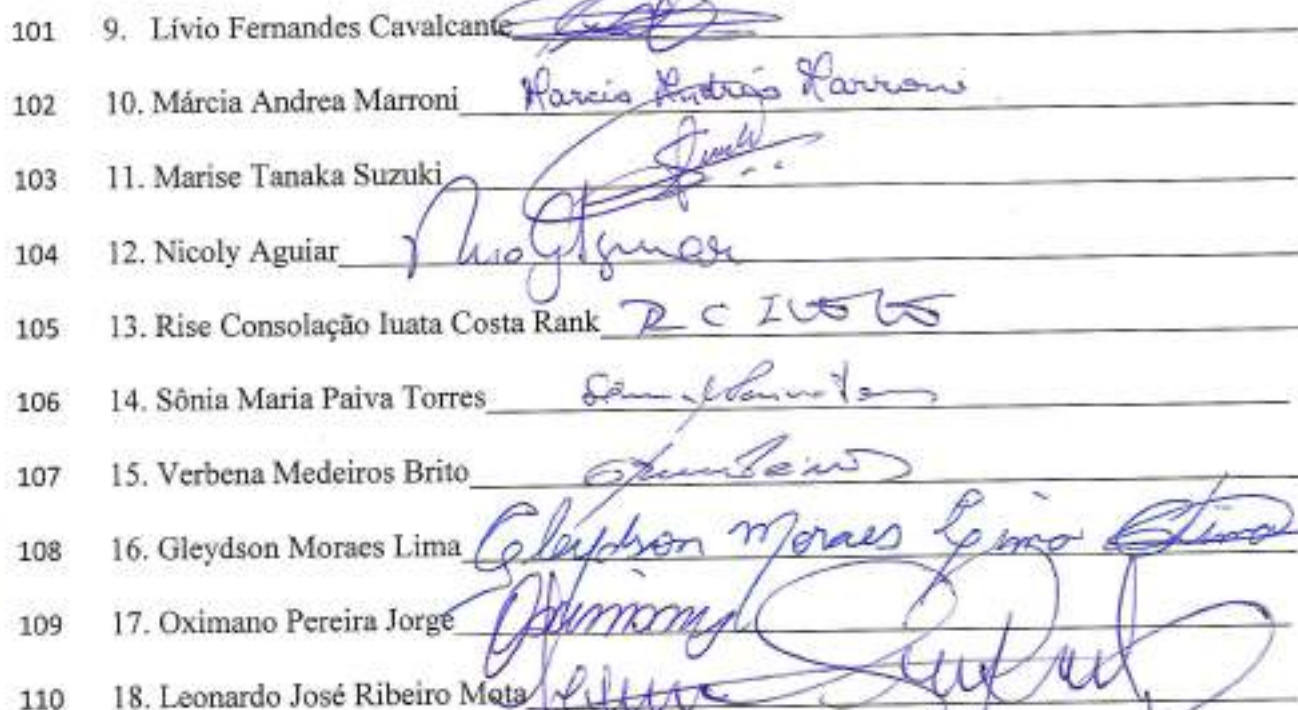 101 9. Lívio Fernandes Cavalcante
102 10. Márcia Andrea Marroni Marcia Andréa Marroni
103 11. Marise Tanaka Suzuki
104 12. Nicoly Aguiar
105 13. Rise Consolação Iuata Costa Rank R C
106 14. Sônia Maria Paiva Torres
107 15. Verbena Medeiros Brito
108 16. Gleydson Moraes Lima Gleydson Moraes Lima
109 17. Oximano Pereira Jorge
110 18. Leonardo José Ribeiro Mota